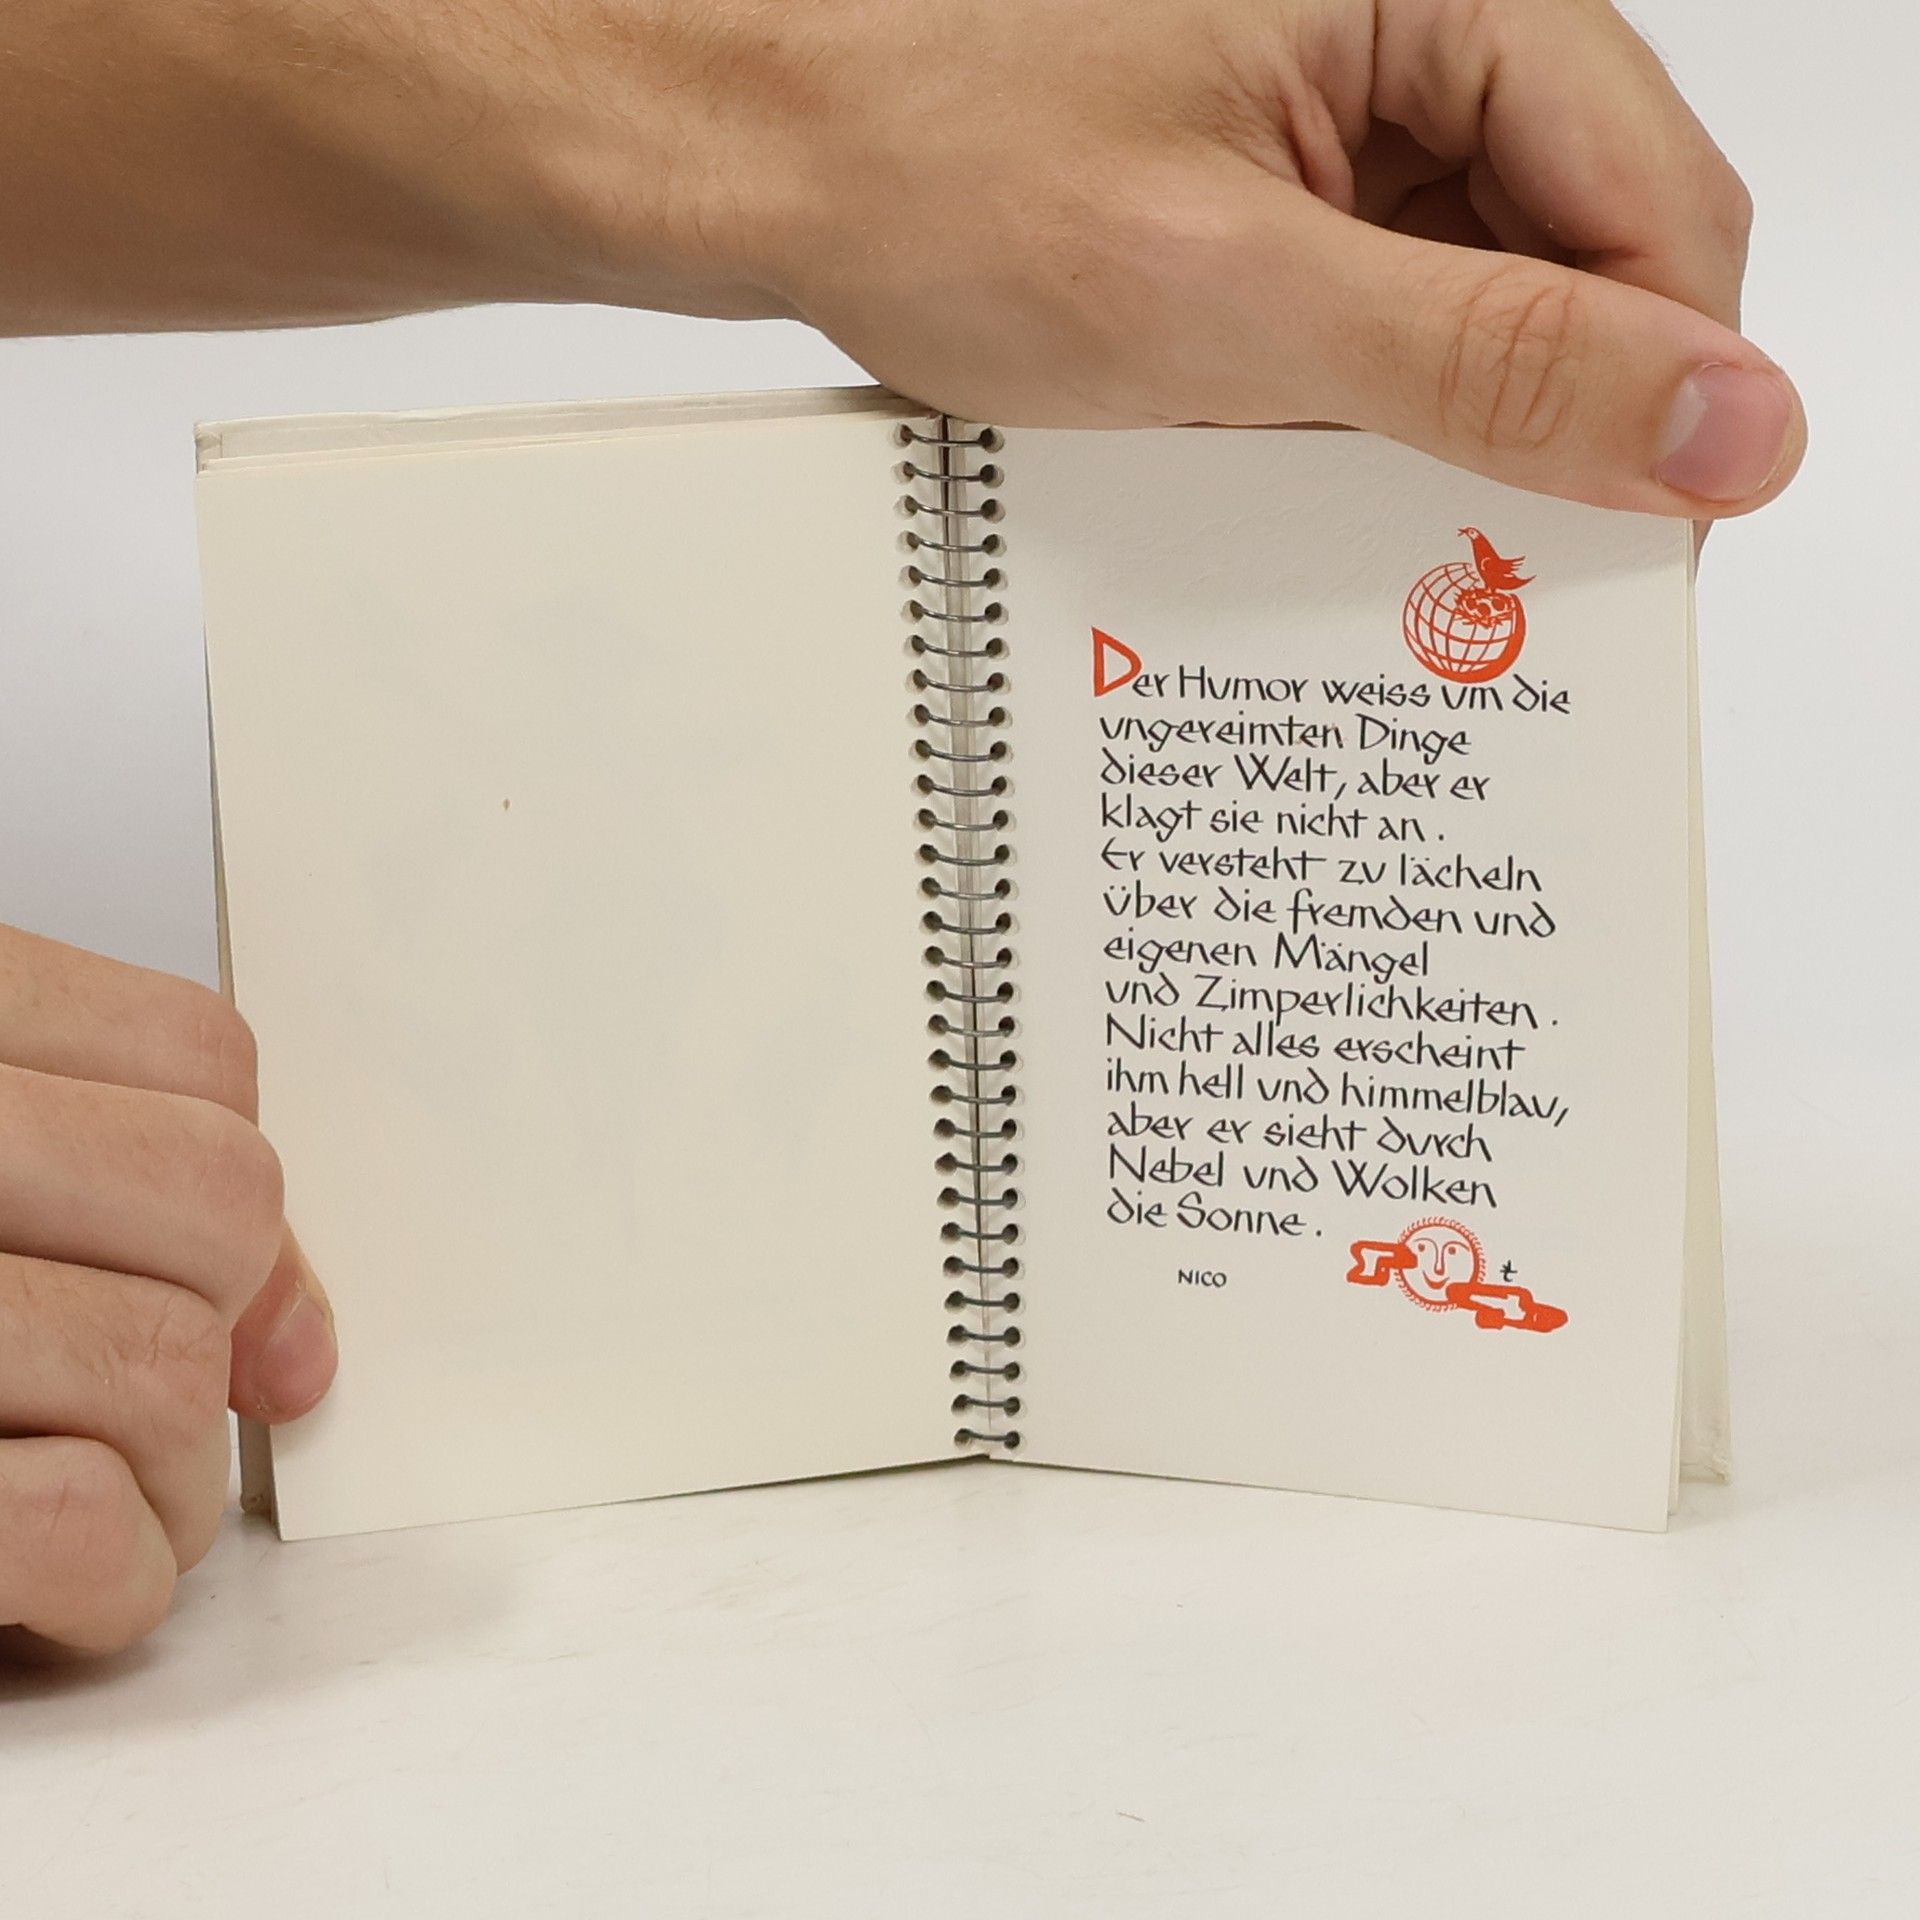 Der Humor weiss um die
ungereimten Dinge
dieser Welt, aber er
klagt sie nicht an.
Er versteht zu lächeln
über die fremden und
eigenen Mängel
und Zimperlichkeiten.
Nicht alles erscheint
ihm hell und himmelblau,
aber er sieht durch
Nebel und Wolken
die Sonne.
NICO